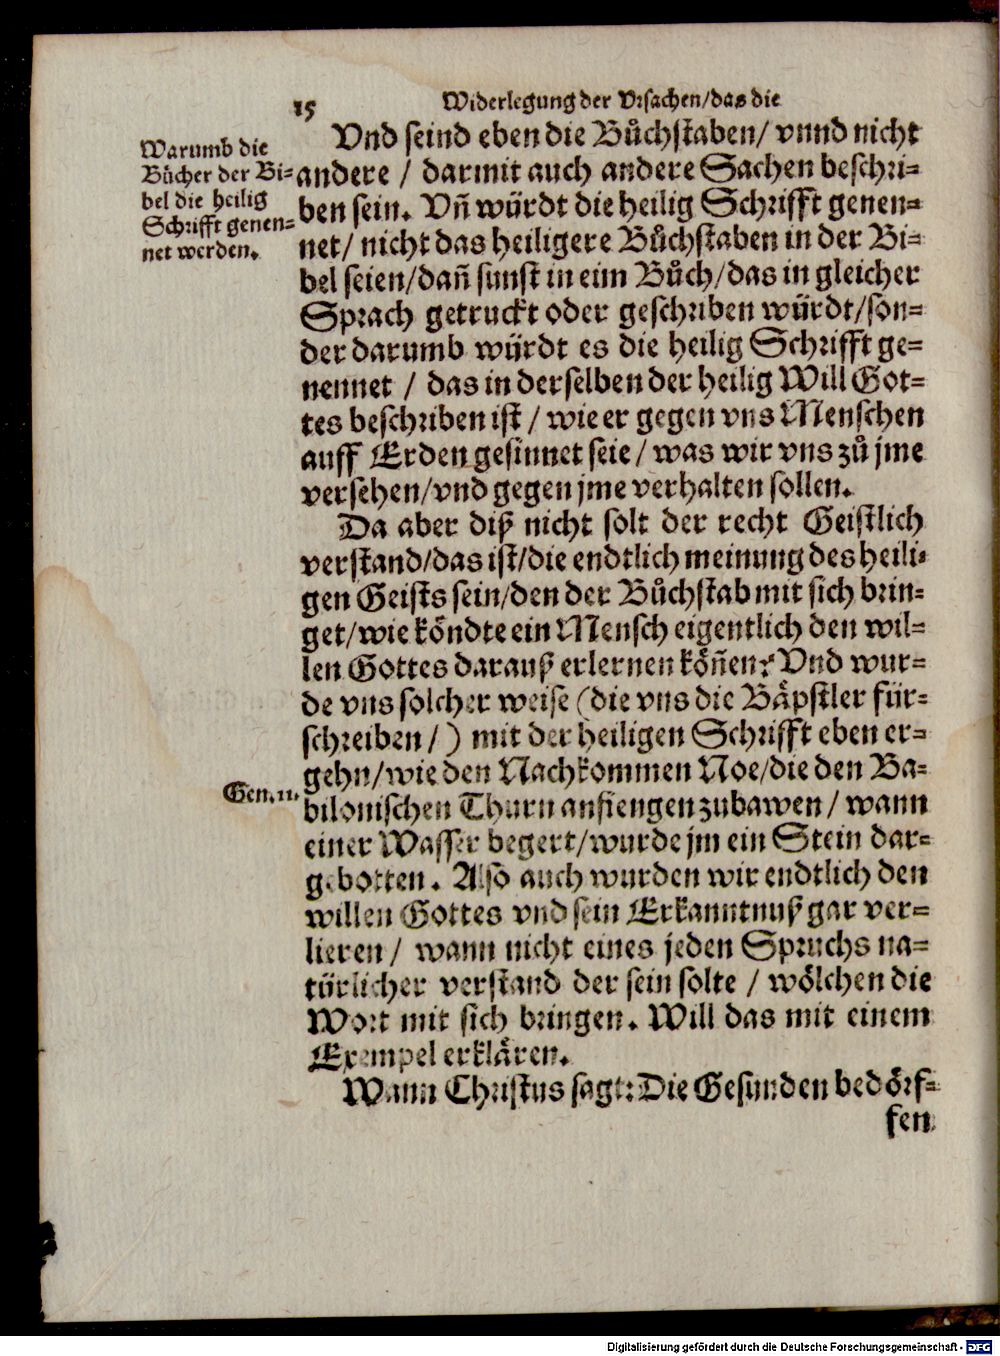 15 Widerlegung der Vrsachen/das die
Warumb die
Bücher der Bi=
bel die heilig
Schrifft genen=
net werden.
Vnd seind eben die Bůchstaben/ vnnd nicht
andere / darmit auch andere Sachen beschri=
ben sein. Vñ würdt die heilig Schrifft genen=
net/ nicht das heiligere Bůchstaben in der Bi=
bel seien/dañ sunst in eim Bůch/das in gleicher
Sprach getruckt oder geschriben würdt/son=
der darumb würdt es die heilig Schrifft ge=
nennet / das in derselben der heilig Will Got=
tes beschriben ist / wie er gegen vns Menschen
auff Erden gesinnet seie / was wir vns zů jme
versehen/vnd gegen jme verhalten sollen.
Da aber diß nicht solt der recht Geistlich
verstand/das ist/die endtlich meinung des heili=
gen Geists sein/den der Bůchstab mit sich brin=
get/wie köndte ein Mensch eigentlich den wil=
len Gottes darauß erlernen köñen? Vnd wur=
de vns solcher weise (die vns die Bäpstler für=
schreiben/) mit der heiligen Schrifft eben er=
gehn/wie den Nachkommen Noe/die den Ba=
Gen.11.
bilonischen Thurn anfiengen zubawen / wann
einer Wasser begert/wurde jm ein Stein dar=
gebotten. Also auch wurden wir endtlich den
willen Gottes vnd sein Erkanntnuß gar ver=
lieren / wann nicht eines jeden Spruchs na=
türlicher verstand der sein solte / wölchen die
Wort mit sich bringen. Will das mit einem
Exempel erklären.
Wann Christus sagt: Die Gesunden bedörf=
fen
Digitalisierung gefördert durch die Deutsche Forschungsgemeinschaft - DFG